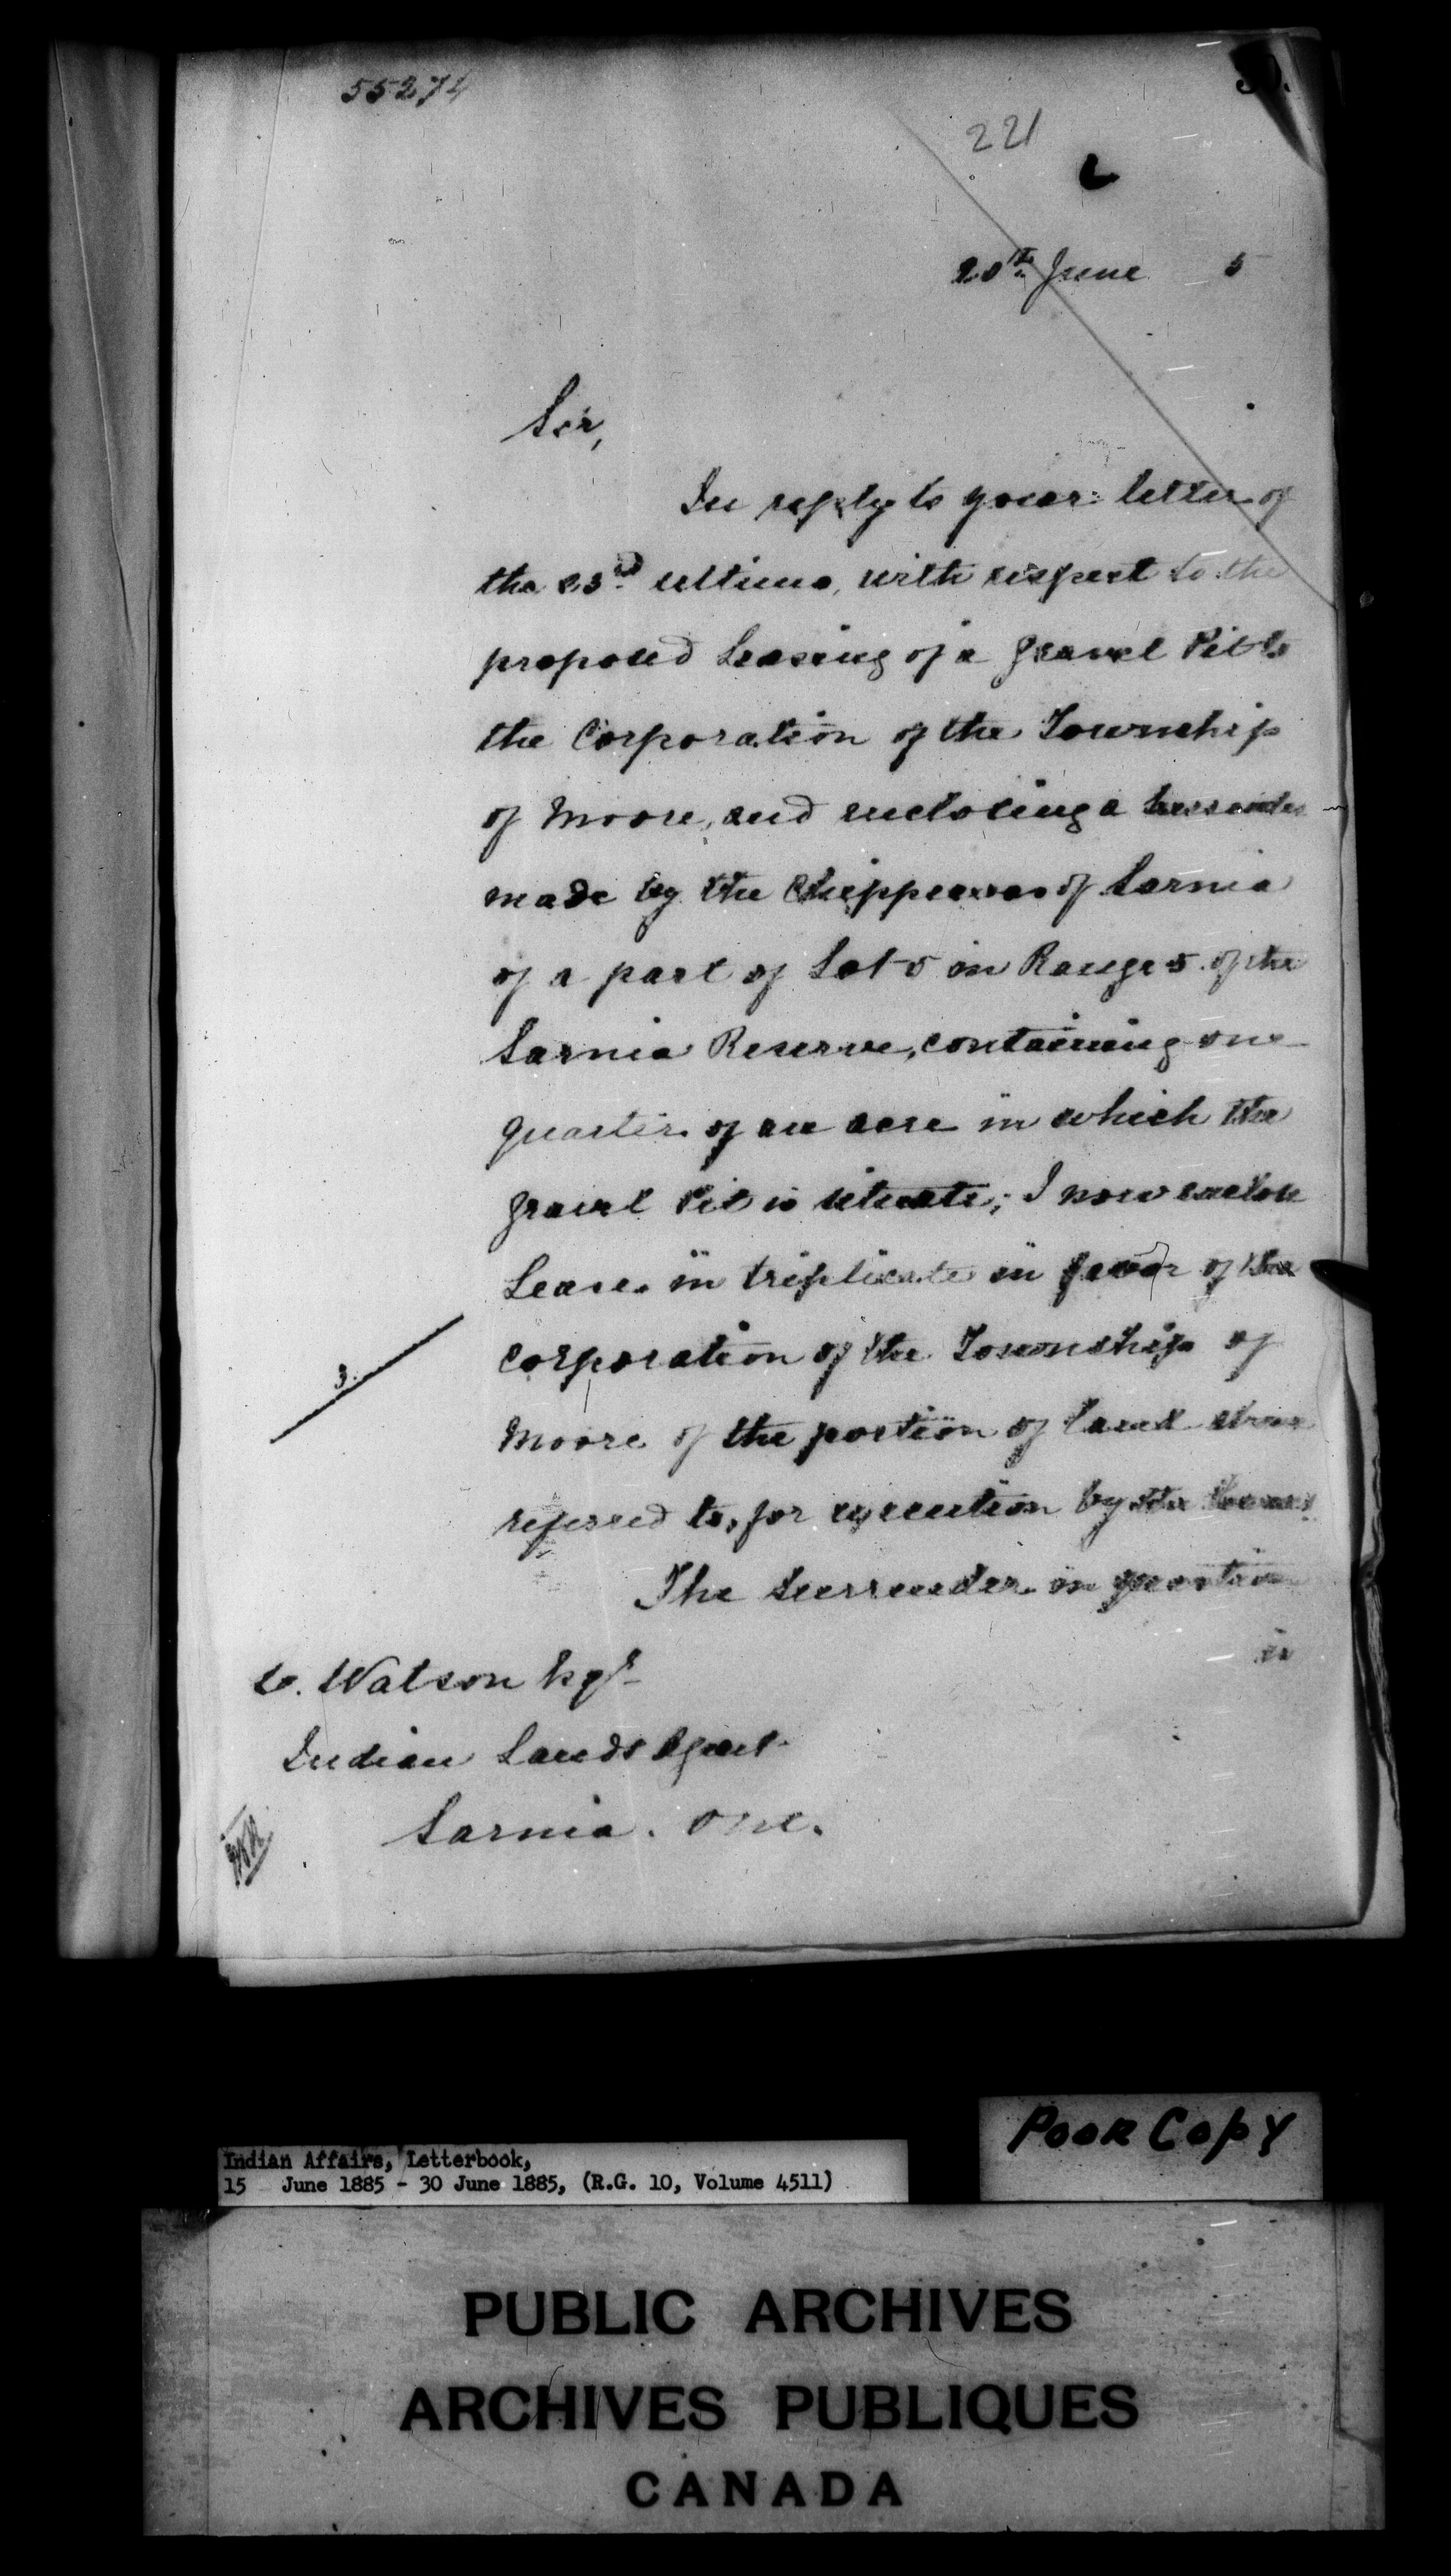 55274
221
20th June 5
Sir,
In reply to your letter of
the 23rd ultimo, with respect to the
proposed Leasing of a Gravel Pit to
the Corporation of the Township
of Moore, and enclosing a Surrender
made by the Chippewas of Sarnia
of a part of Lot 5 in Range 5 of the
Sarnia Reserve, containing one
quarter of an acre in which the
Gravel Pit is situate; I now enclose
Lease in triplicate in favor of the
Corporation of the Township of
3.
Moore of the portion of land above
referred to, for execution by the
The Surrender in question
is
Watson Esqr
Indian Lands Agent
Sarnia. Ont.
Poor Copy
Indian Affairs, Letterbook,
15 June 1885 - 30 June 1885, (R.G. 10, Volume 4511)
PUBLIC ARCHIVES
ARCHIVES PUBLIQUES
CANADA